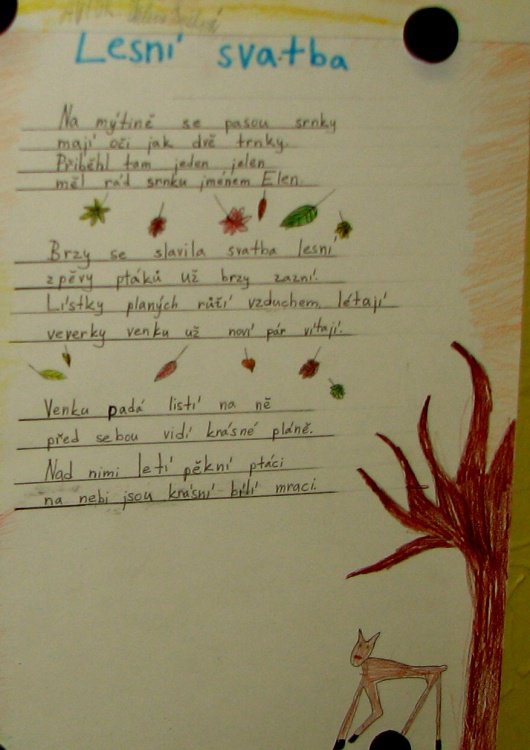 Lesní svatba
Na mýtině se pasou srnky
mají oči jak dvě trnky.
Přiběhl tam jeden jelen
měl rád srnku jménem Elen.
Brzy se slavila svatba lesní
zpěvy ptáků už brzy zazní.
Lístky planých růží vzduchem létají
veverky venku už noví pár vítají.
Venku padá listí na ně
před sebou vidí krásné pláně.
Nad nimi letí pěkní ptáci
na nebi jsou krásní bílí mraci.